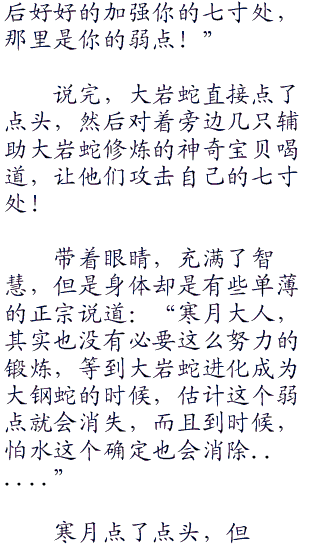 后好好的加强你的七寸处，
那里是你的弱点！”
说完，大岩蛇直接点了
点头，然后对着旁边几只辅
助大岩蛇修炼的神奇宝贝喝
道，让他们攻击自己的七寸
处！
带着眼睛，充满了智
慧，但是身体却是有些单薄
的正宗说道：“寒月大人，
其实也没有必要这么努力的
锻炼，等到大岩蛇进化成为
大钢蛇的时候，估计这个弱
点就会消失，而且到时候，
怕水这个确定也会消除..
....”
寒月点了点头，但